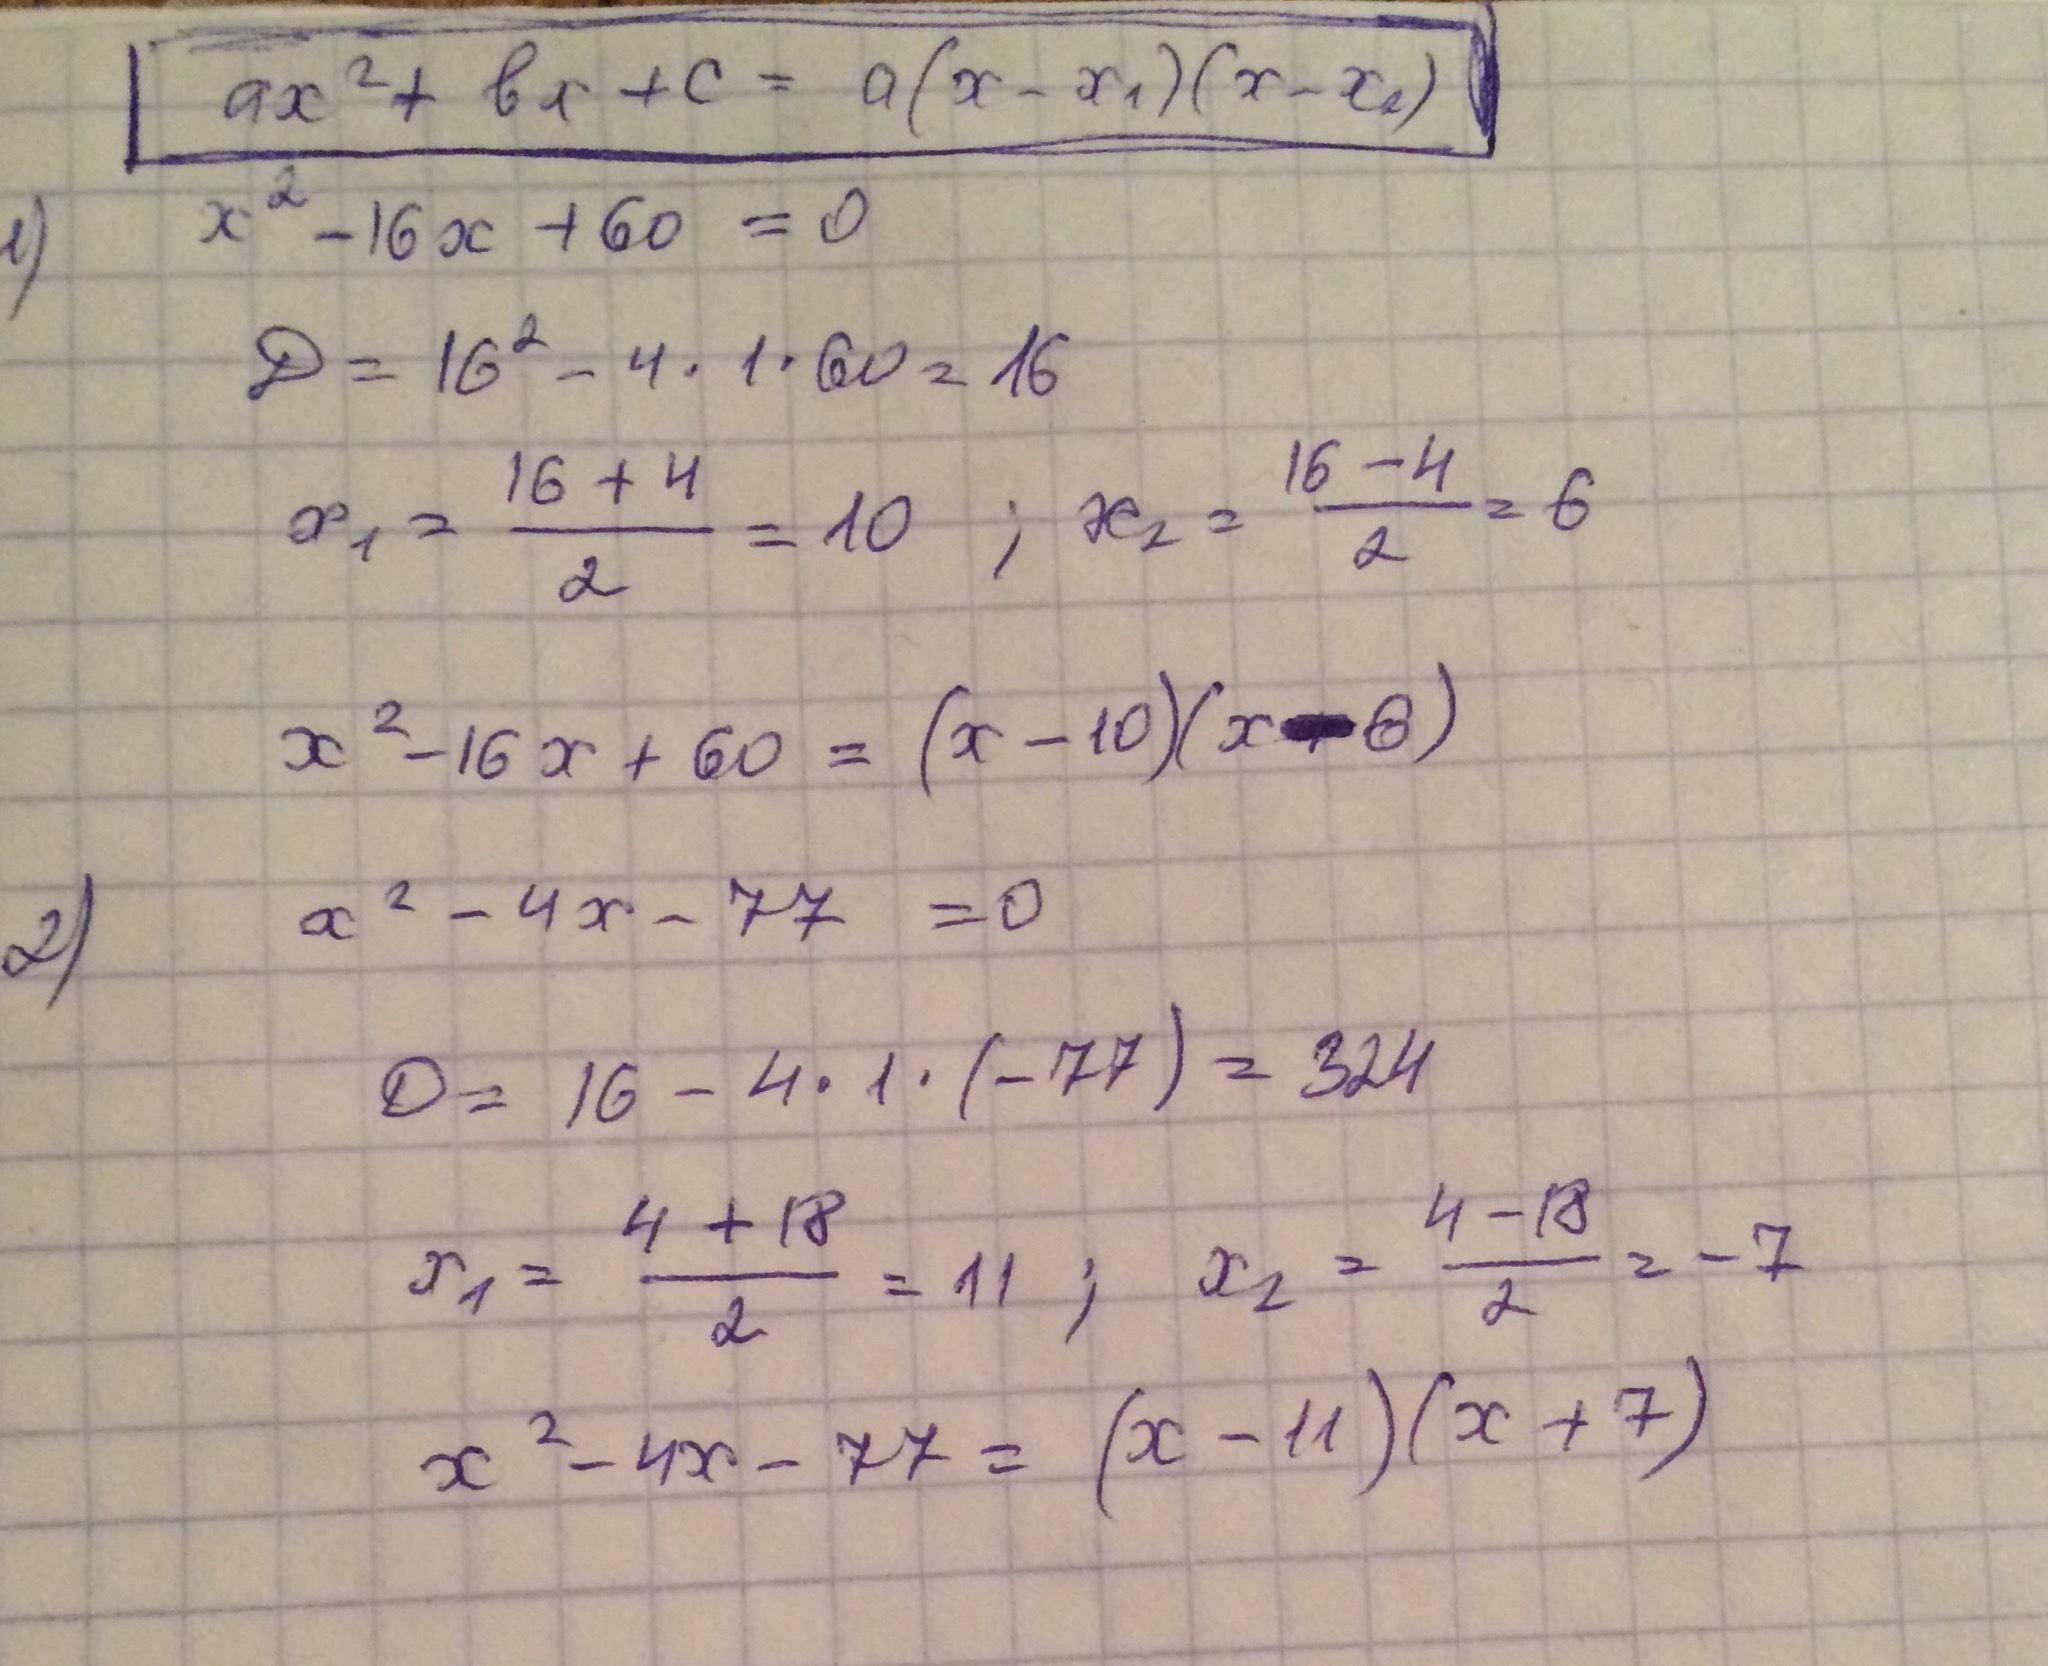 ax² + bx + c = a(x - x₁)(x - x₂)
1) x² - 16x + 60 = 0
D = 16² - 4 · 1 · 60 = 16
x₁ = (16 + 4)/2 = 10 ; x₂ = (16 - 4)/2 = 6
x² - 16x + 60 = (x - 10)(x - 6)
2) x² - 4x - 77 = 0
D = 16 - 4 · 1 · (-77) = 324
x₁ = (4 + 18)/2 = 11 ; x₂ = (4 - 18)/2 = -7
x² - 4x - 77 = (x - 11)(x + 7)